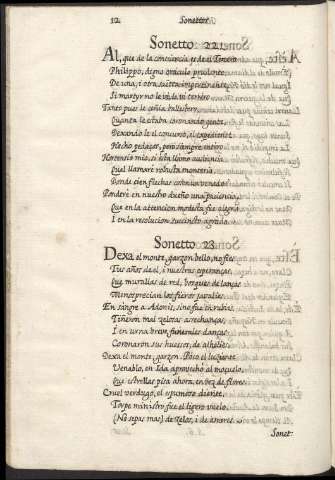 12 Sonettos
Sonetto 22.
Al, que de la conciencia es de el Tercero
Philippo, digno oraculo prudente,
De una, i otra saeta impertinente,
Si martyr no le vi, le vi terrero
Tanto pues le ceñia ballestero,
Quanta le estaba coronando gente,
Dexandole el concurso, el expediente
Hecho pedaços, pero siempre entero.
Hortensio mio, si esta llamo audiencia,
Qual llamarè robusta monteria
Donde cien flechas cosen un venado?
Ponderè en nuestro dueño una paciencia,
Que en la attencion modesta fue alegria,
I en la resolucion succinto agrado.
Sonetto 23.
Dexa el monte, garzon bello, no fies
Tus años de el, i nuestras esperanças;
Que murallas de red, bosques de lanças
Menosprecian los fieros jaualies.
En sangre a Adonis, sino fue en rubies,
Tiñeron mal zelosas assechanças,
I en urna breve funerales danças
Coronaron sus huessos, de alhelies.
Dexa el monte, garzon. Poco el luziente
Venablo, en Ida aprovechò al moçuelo,
Que estrellas pisa ahora, en vez de flores.
Cruel verdugo, el espumoso diente,
Torpe ministro fue el ligero vuelo,
(No sepas mas) de zelos, i de amores.
Sonet-